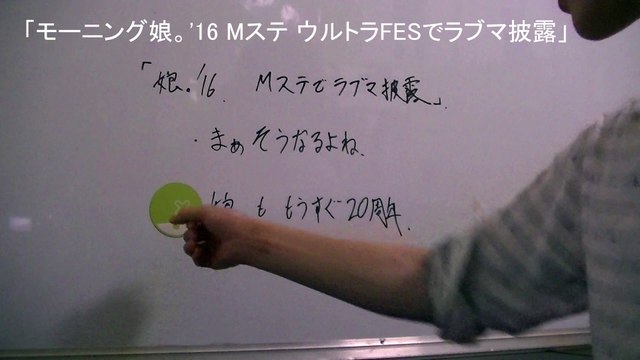 「モーニング娘。'16 Mステ ウルトラFESでラブマ披露」
「娘。'16 Mステでラブマ披露」
・まぁそうなるよね、
娘 も もうすぐ20周年、